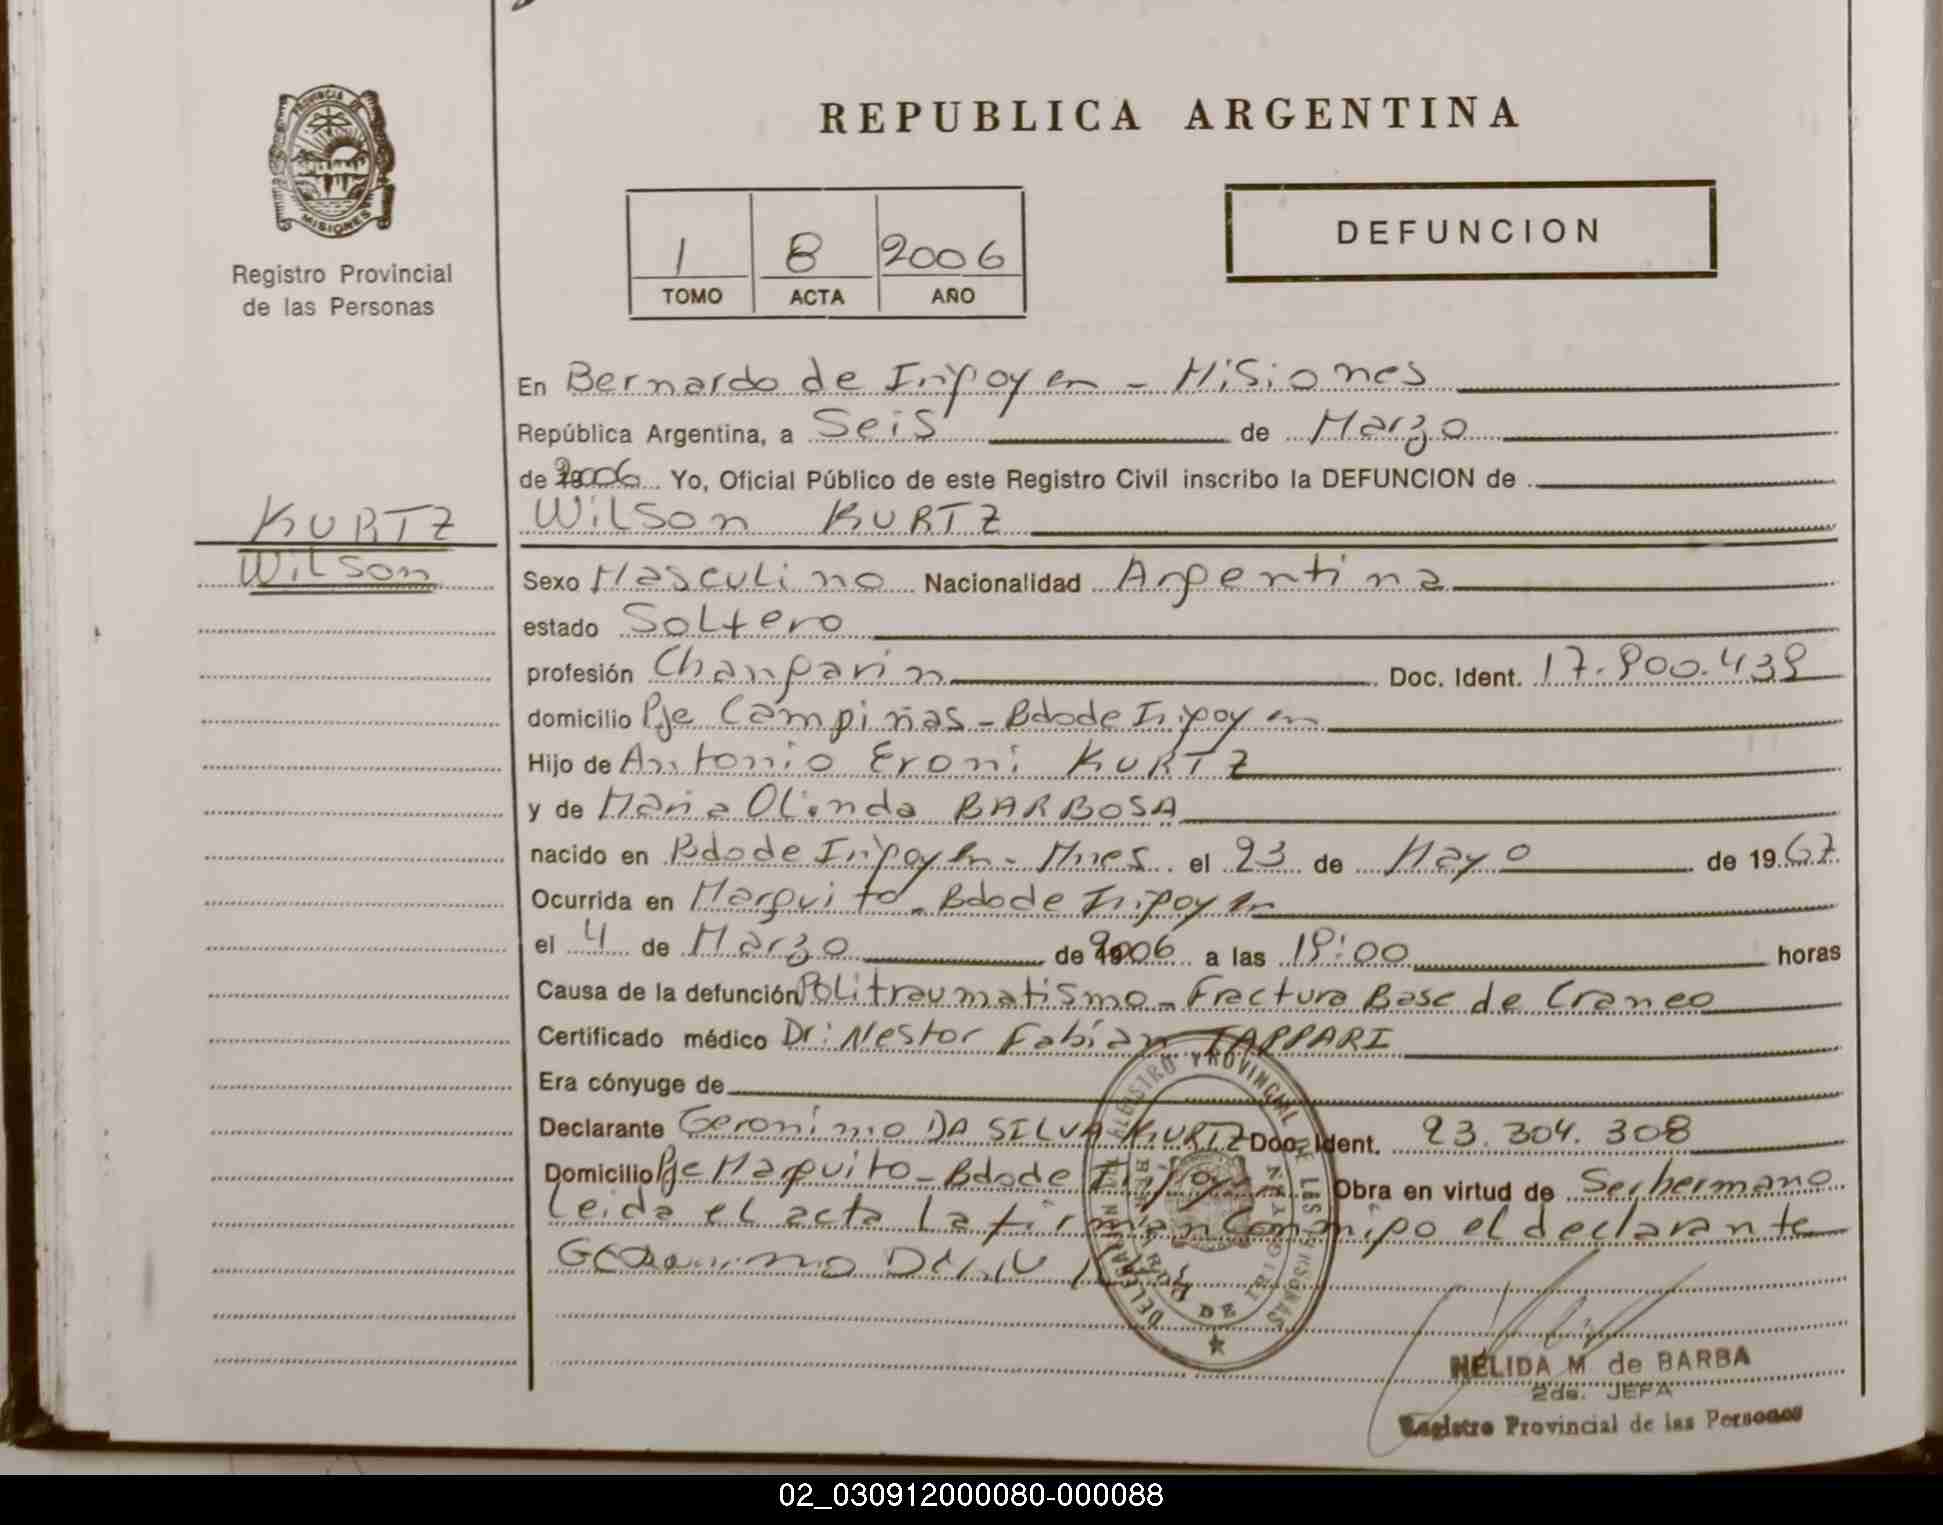 PROVINCIA DE
MISIONES
Registro Provincial
de las Personas
REPUBLICA ARGENTINA
1 8 2006
TOMO ACTA AÑO
DEFUNCION
En Bernardo de Irigoyen - Misiones
República Argentina, a Seis de Marzo
de 2006 Yo, Oficial Público de este Registro Civil inscribo la DEFUNCION de
KURTZ
Wilson
Wilson KURTZ
Sexo Masculino Nacionalidad Argentina
estado Soltero
profesión Changarin Doc. Ident.
domicilio Pje Campiñas - Bdo de Irigoyen
Hijo de Antonio Eroni KURTZ
y de Maria Olinda BARBOSA
nacido en Bdo de Irigoyen - Mnes. el 23 de Mayo de 1967
Ocurrida en Marquito - Bdo de Irigoyen
el 4 de Marzo de 2006 a las horas
Causa de la defunción Politraumatismo - Fractura Base de Craneo
Certificado médico Dr: Nestor Fabían TAPPARI
Era cónyuge de
Declarante Geronimo DA SILVA KURTZ Doc. Ident. 23.304.308
Domicilio Pje Marquito - Bdo de Irigoyen Obra en virtud de Ser hermano
Leida el acta la firman conmigo el declarante
REGISTRO PROVINCIAL DE LAS PERSONAS
DELEGACION
BERNARDO DE IRIGOYEN
NELIDA M. de BARBA
2da. JEFA
Registro Provincial de las Personas
02_030912000080-000088